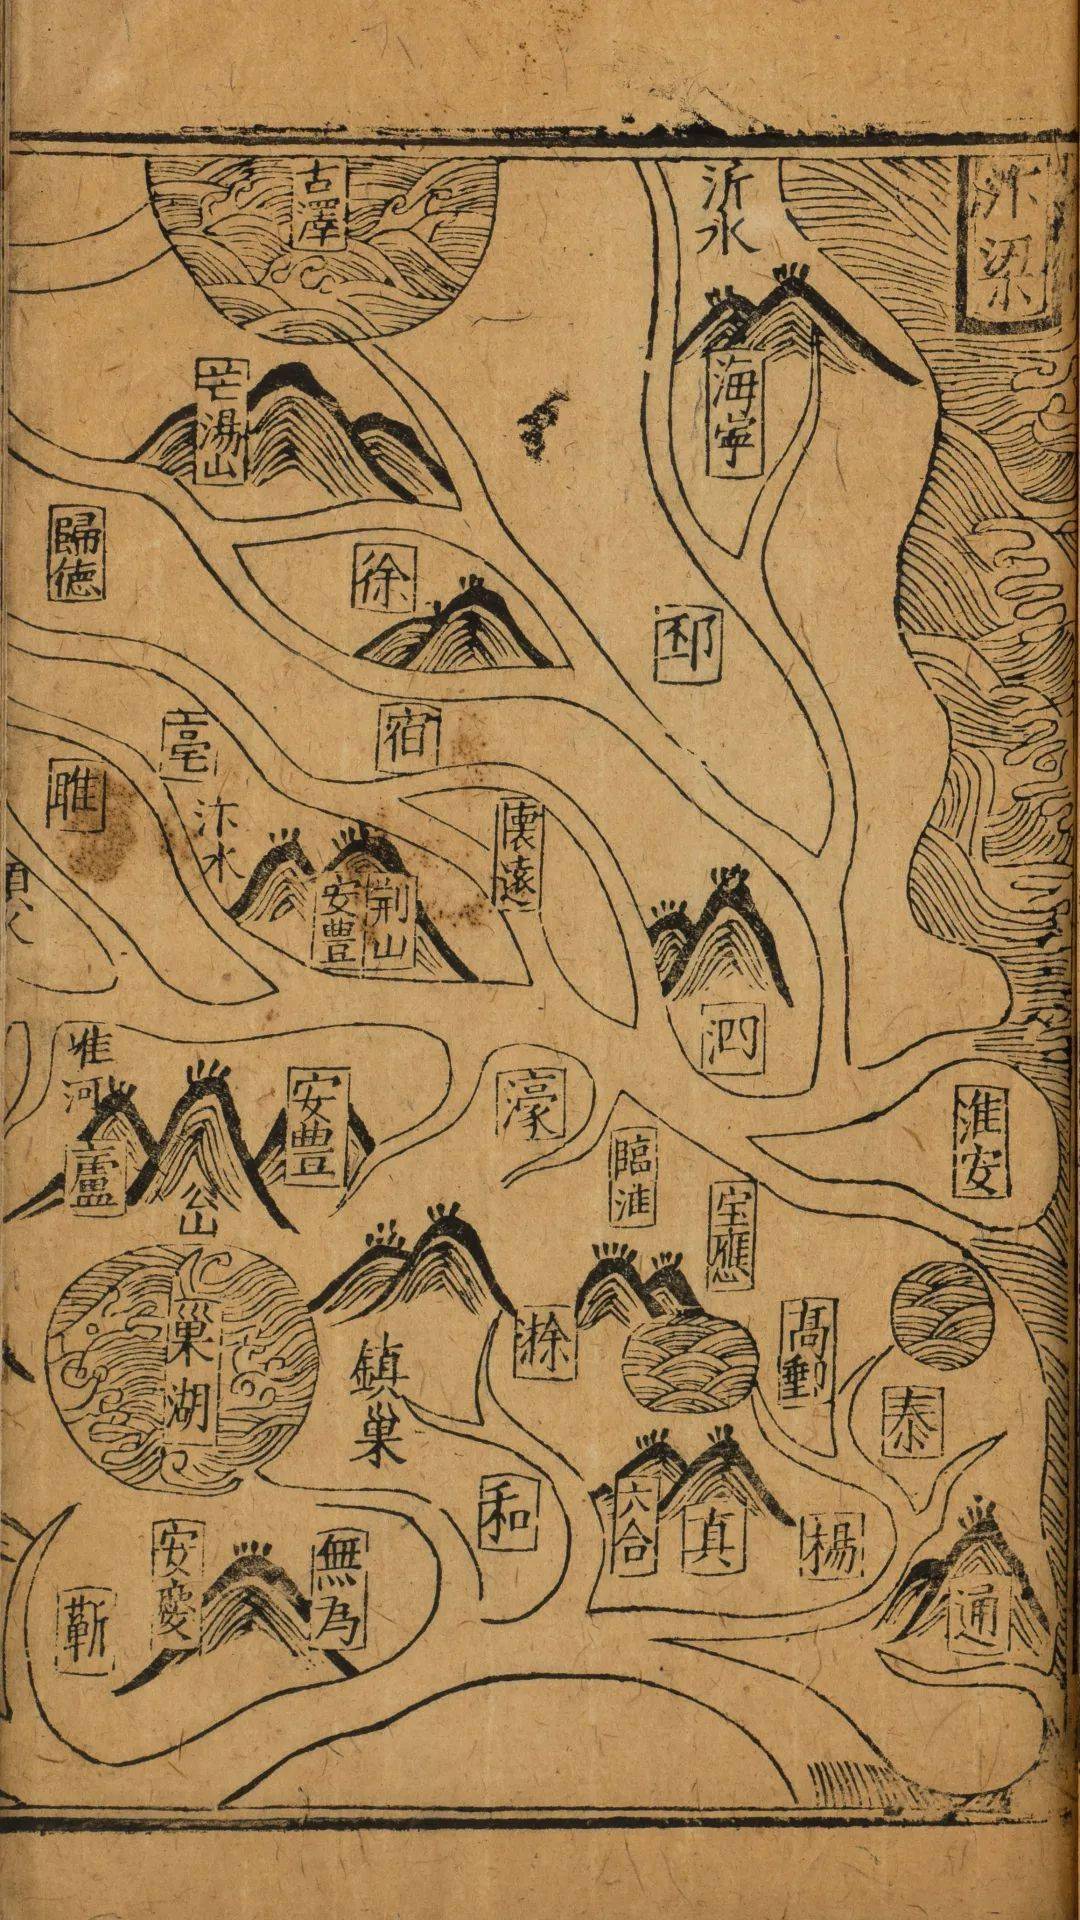 汴梁
沂水
古澤
海寧
芒湯山
歸德
徐
邳
宿
亳
睢
汴水
懷遠
荆山
安豊
泗
淮河
安豊
濠
淮安
臨淮
廬
公山
宝應
巢湖
鎮巢
滁
高郵
泰
和
六合
真
楊
安慶
無為
蘄
通